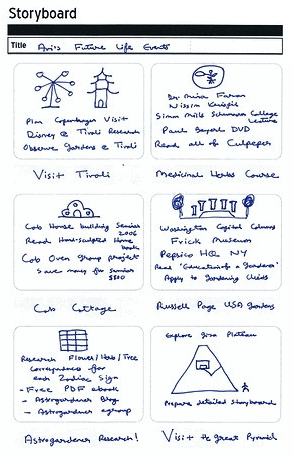 Storyboard
Title Avi's Future Life Events
Plan Copenhagen Visit
Disney @ Tivoli Research
Observe Gardens @ Tivoli
Visit Tivoli
Dr. Mina Farvan
Simon Mills Schumacher College
Lecture
Paul Beyerl DVD
Read all of Culpeper
Medicinal Herbs Course
Cob House building Seminar
2006
Read Hand-sculpted Home
book
Cob Oven group project
Save money for seminar
$800
Cob Cottage
Washington Capitol Columns
Frick Museum
Pepsico HQ NY
Read "Education of a Gardener"
Apply to Gardening Clubs
Russell Page USA Gardens
Research Flower/Herb/Tree
Correspondences for
each Zodiac Sign
- Free PDF ebook
- Astrogardener Blog
- Astrogardener egroup
Astrogardener Research!
Explore Giza Plateau
Prepare detailed storyboard
Visit the Great Pyramid